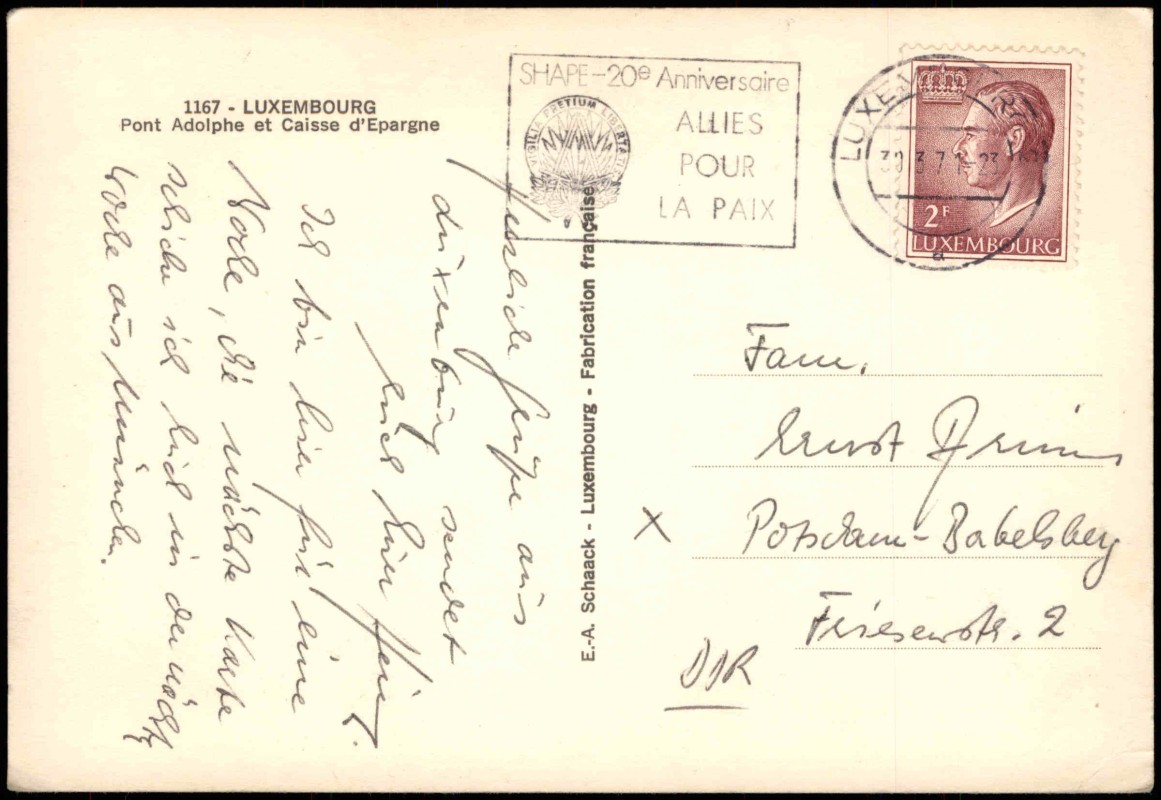 1167 - LUXEMBOURG
Pont Adolphe et Caisse d'Epargne
SHAPE-20e Anniversaire
VIGILIA PRETIUM LIBERTATIS
ALLIES
POUR
LA PAIX
LUXEMBOURG
30 3 71 - 23
a
2F
LUXEMBOURG
Herzliche Grüße aus
Luxemburg sendet
Euch Euer
Ich bin hier für eine
Woche, die nächste Karte
schicke ich Euch in der nächsten
Woche aus München.
E.-A. Schaack - Luxembourg - Fabrication française
Fam.
Ernst
X Potsdam-Babelsberg
Friesenstr. 2
DDR